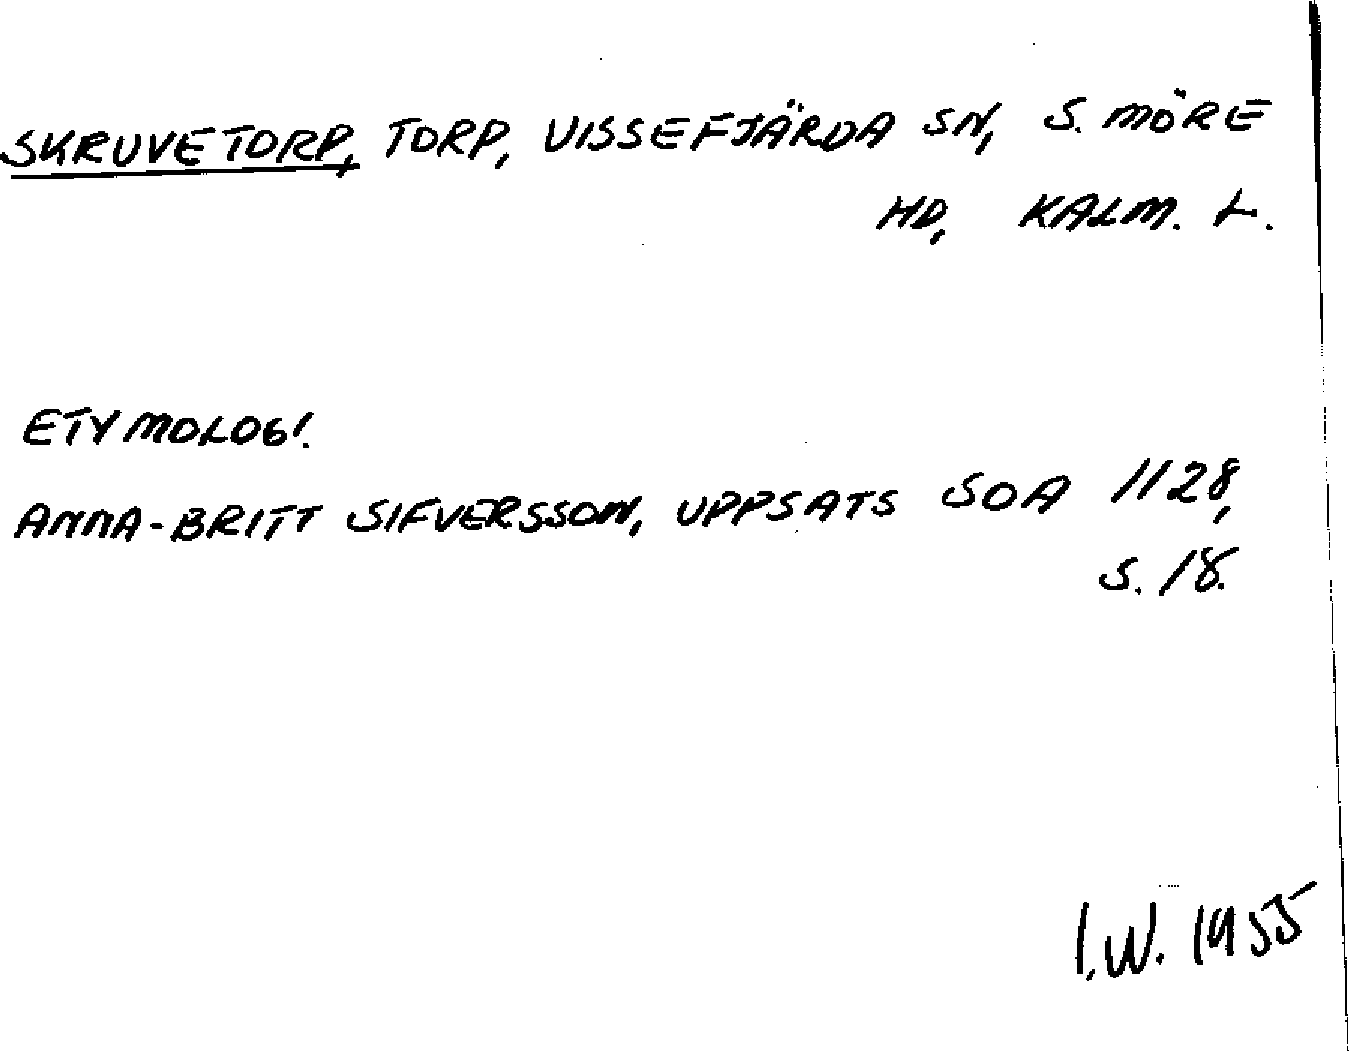 SKRUVETORP, TORP, VISSEFJÄRDA SN, S. MÖRE
HD, KALM. L.
ETYMOLOGI.
ANNA-BRITT SIFVERSSON, UPPSATS SOA 1128,
S. 18.
I.W. 1955